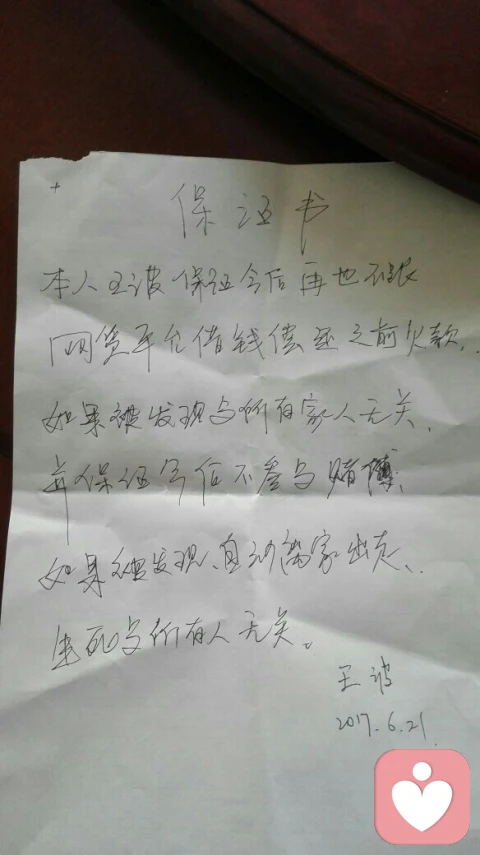 保证书
本人王波保证今后再也不跟
网贷平台借钱偿还之前欠款、
如果被发现与所有家人无关、
并保证今后不参与赌博、
如果被发现、自动离家出走、
生死与所有人无关。
王波
2017.6.21